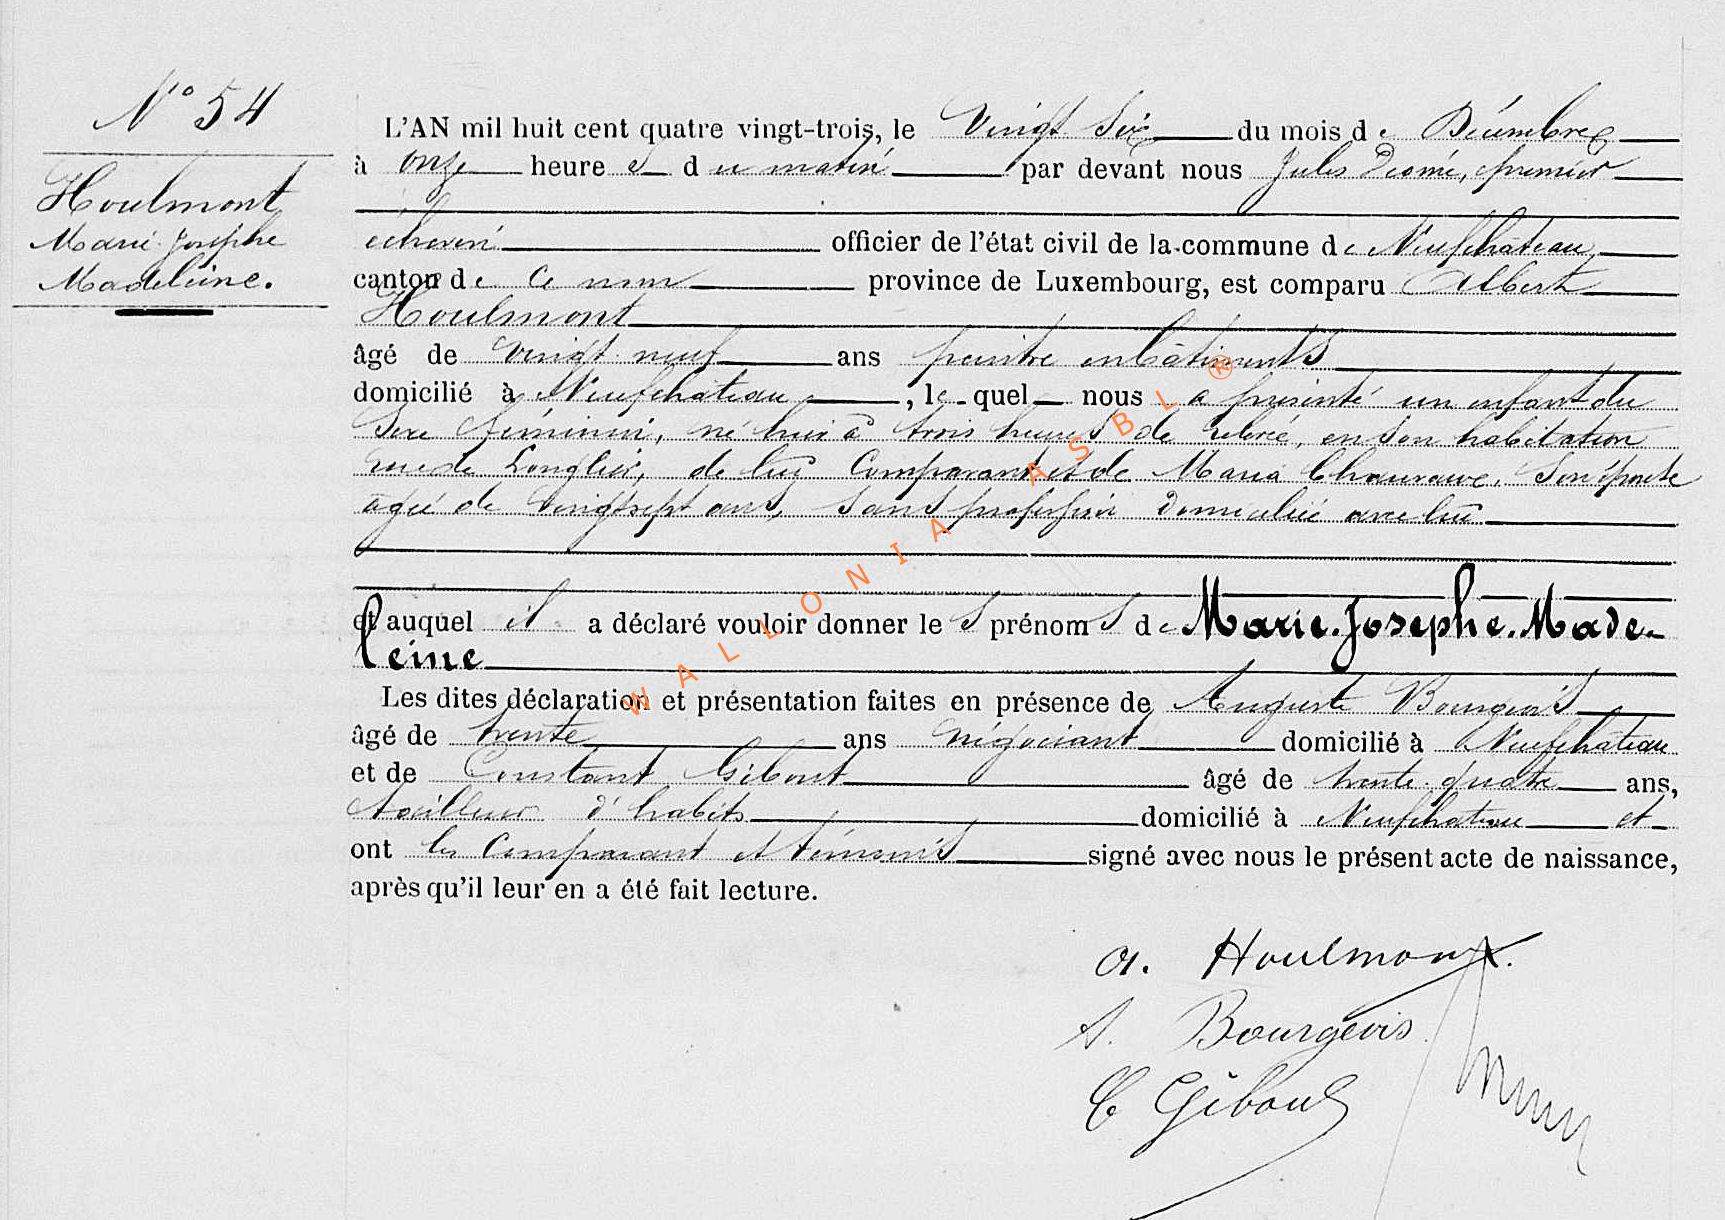 N° 54
Houlmont
Marie-Josèphe
Madeleine.
L'AN mil huit cent quatre vingt-trois, le Vingt Six du mois de Décembre
à onze heures du matin par devant nous Jules premier
échevin officier de l'état civil de la commune de Neufchâteau,
canton de ce nom province de Luxembourg, est comparu Albert
Houlmont
âgé de vingt neuf ans peintre en bâtiments
domicilié à Neufchâteau, lequel nous a présenté un enfant du
Sexe féminin, né hier à trois heures de relevée, en son habitation
rue de Longlier, de lui Comparant et de Maria Son épouse
âgée de Vingt sept ans, sans profession domiciliée avec lui
et auquel il a déclaré vouloir donner les prénoms de Marie-Josephe-Made-
leine
Les dites déclaration et présentation faites en présence de Auguste Bourgeois
âgé de trente ans négociant domicilié à Neufchâteau
et de Constant Gibout âgé de trente-quatre ans,
tailleur d'habits domicilié à Neufchateau et
ont les Comparant et témoins signé avec nous le présent acte de naissance,
après qu'il leur en a été fait lecture.
A. Houlmont.
A. Bourgeois
C Gibout
WALLONIA ASBL ®